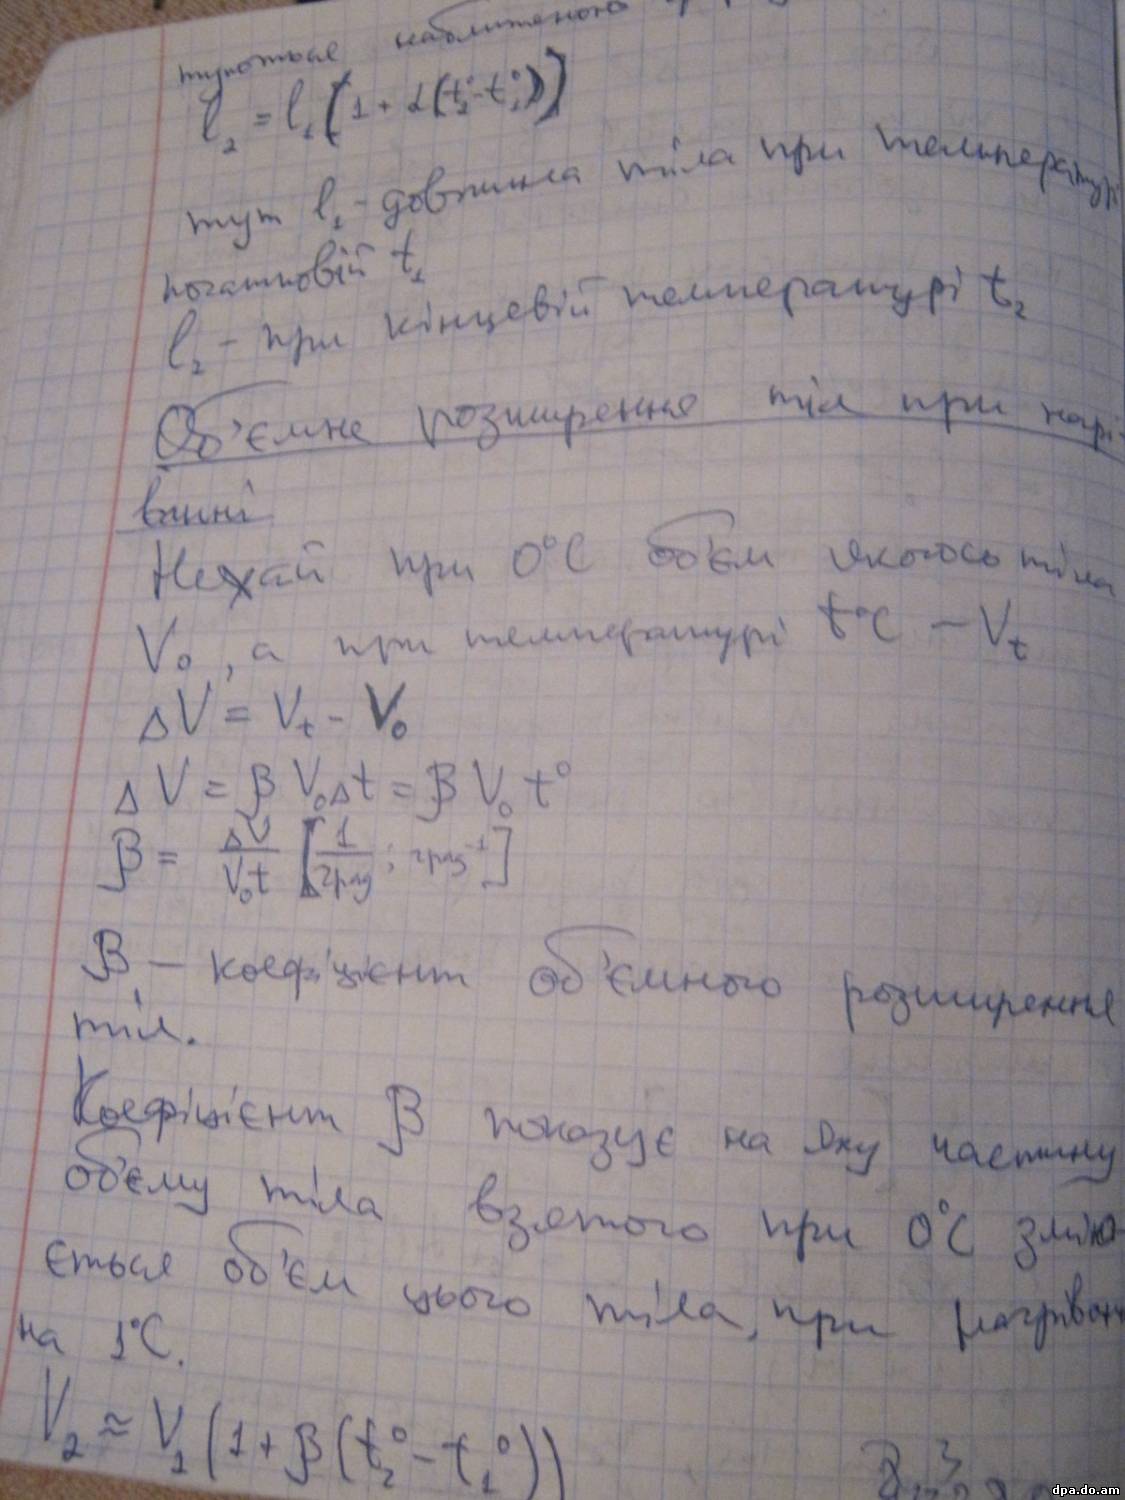 туються наближеною
l₂ = l₁(1 + α(t₂° - t₁°))
тут l₁ - довжина тіла при температурі
початковій t₁
l₂ - при кінцевій температурі t₂
Об'ємне розширення тіл при нагрі-
ванні
Нехай при 0°C об'єм якогось тіла
V₀, а при температурі t°C — Vₜ
ΔV = Vₜ - V₀
ΔV = βV₀Δt = βV₀t°
β = ΔV/V₀t [1/град; град⁻¹]
β — коефіцієнт об'ємного розширення
тіл.
Коефіцієнт β показує на яку частину
об'єму тіла взятого при 0°C зміню-
ється об'єм цього тіла, при нагріванні
на 1°C.
V₂ ≈ V₁(1 + β(t₂° - t₁°))
dpa.do.am